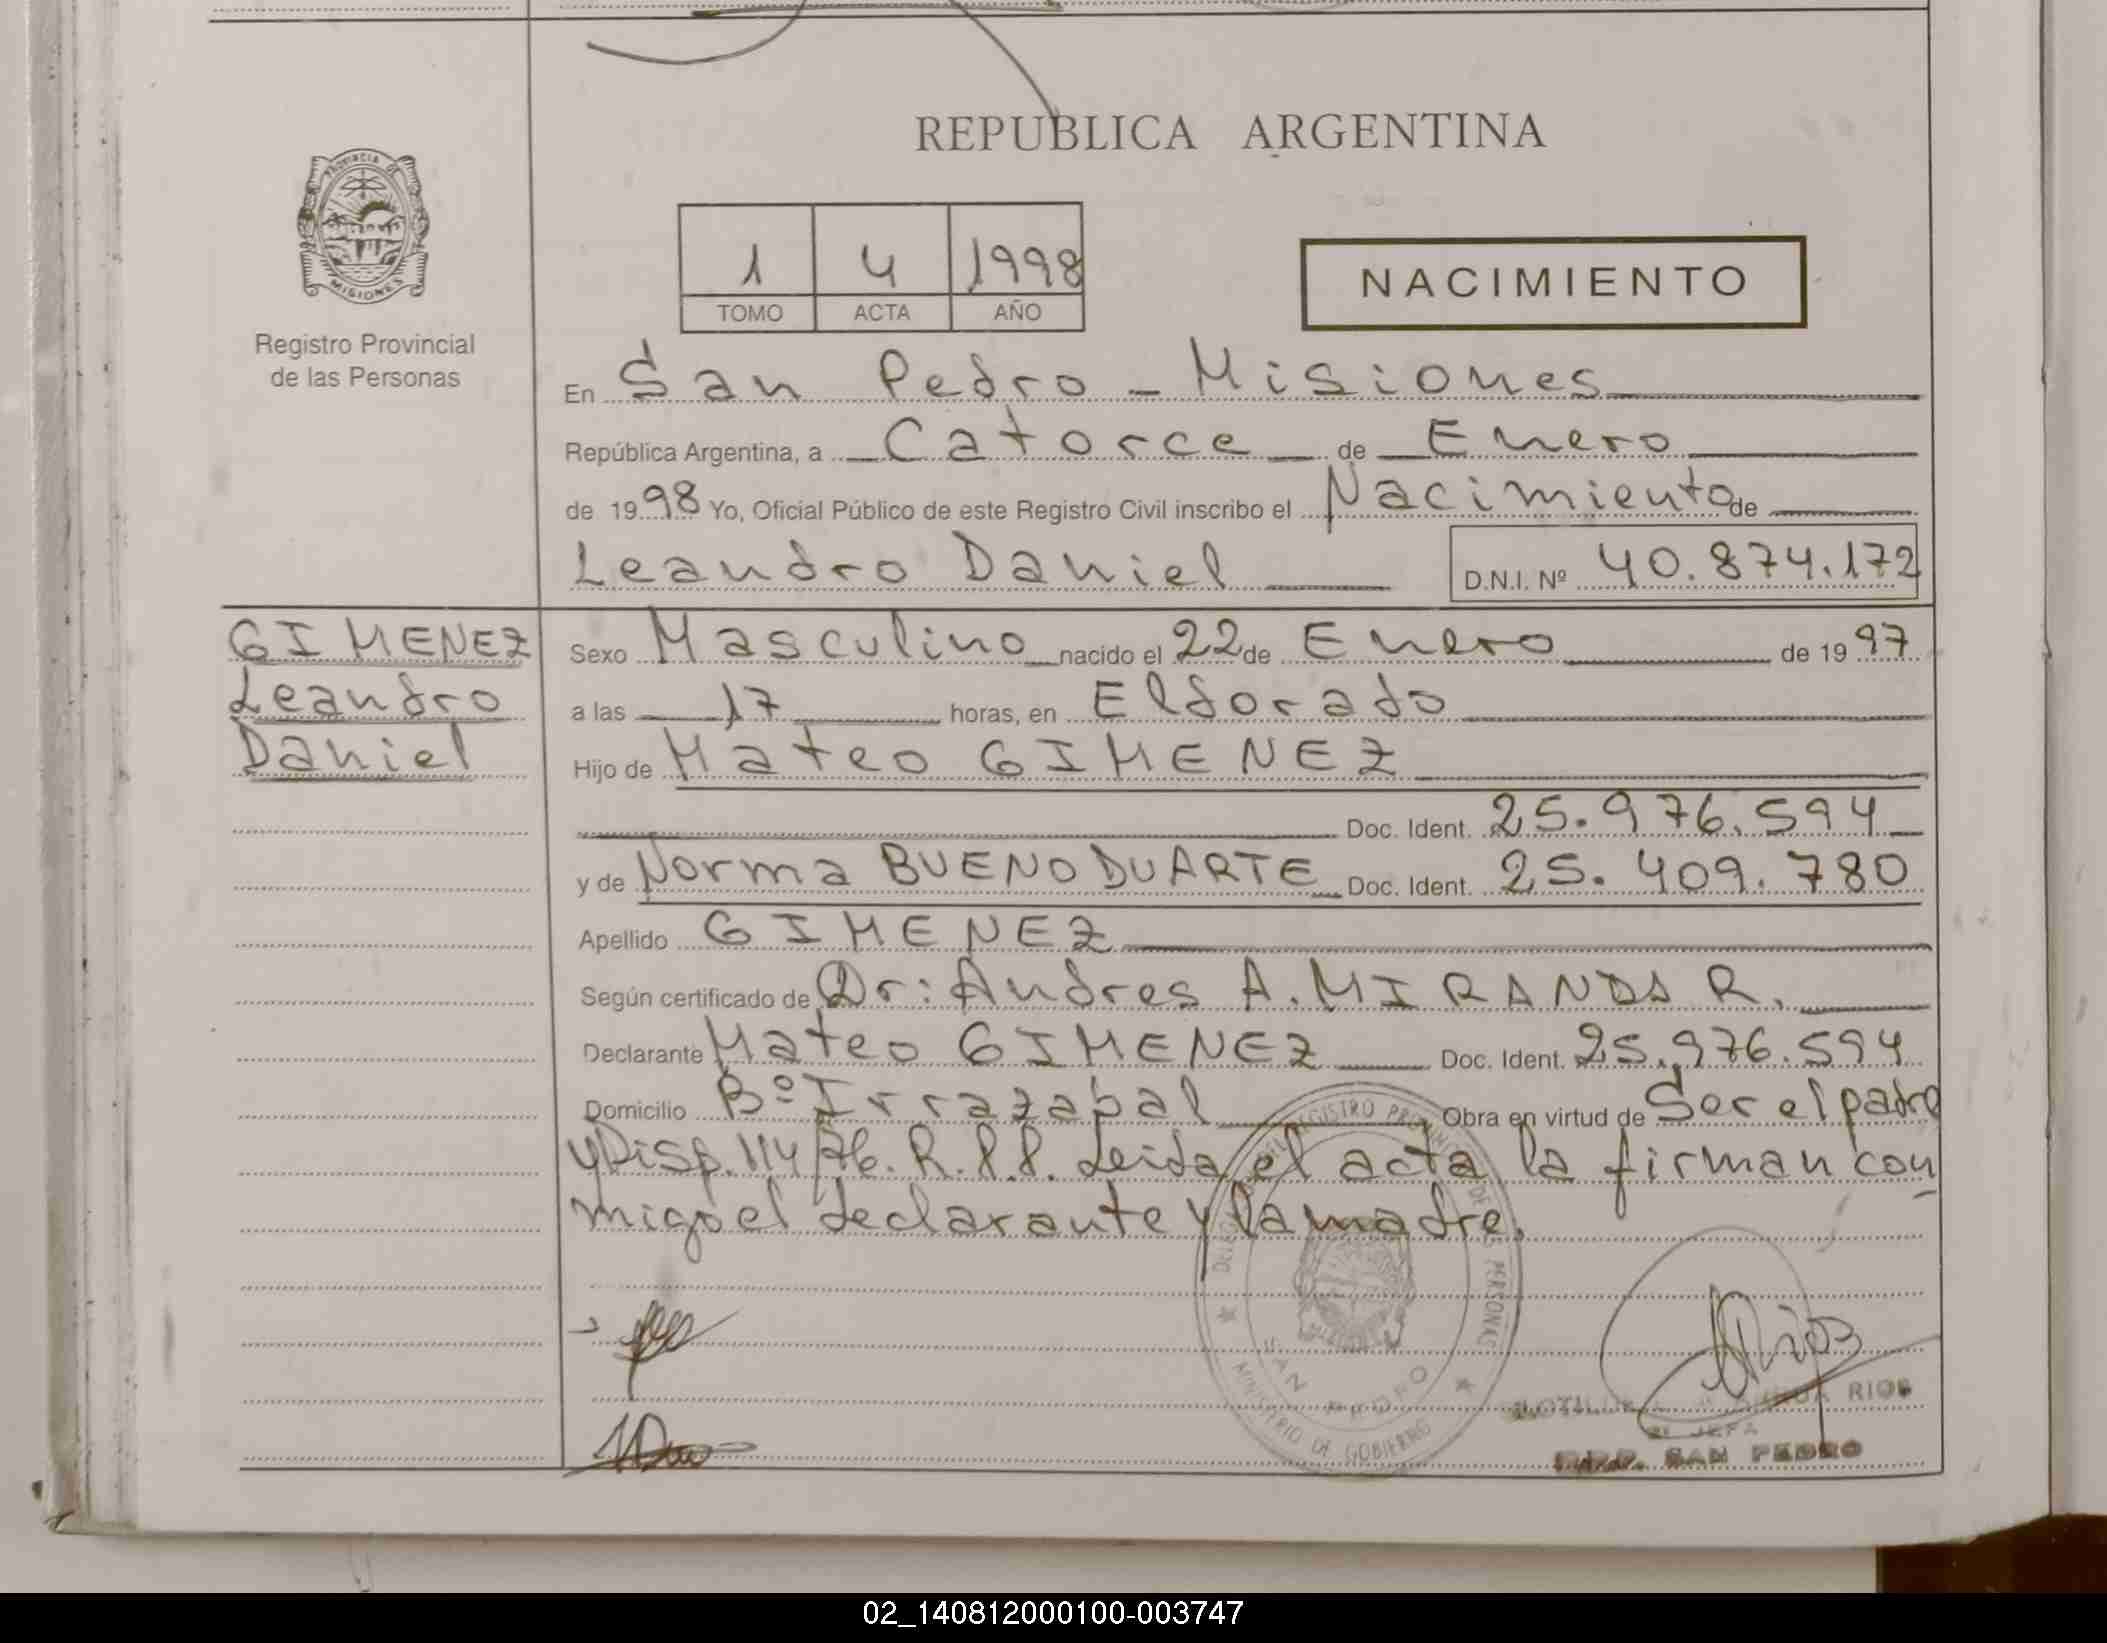 REPUBLICA ARGENTINA
PROVINCIA DE
MISIONES
Registro Provincial
de las Personas
1 4 1998
TOMO ACTA AÑO
NACIMIENTO
En San Pedro - Misiones
República Argentina, a Catorce de Enero
de 1998 Yo, Oficial Público de este Registro Civil inscribo el Nacimiento de
Leandro Daniel D.N.I. Nº 40.874.172
GIMENEZ
Leandro
Daniel
Sexo Masculino nacido el 22 de Enero de 1997
a las 17 horas, en Eldorado
Hijo de Mateo GIMENEZ
Doc. Ident. 25.976.594
y de Norma BUENO DUARTE Doc. Ident. 25.409.780
Apellido GIMENEZ
Según certificado de Dr: Andres A. MIRANDA R.
Declarante Mateo GIMENEZ Doc. Ident. 25.976.594
Domicilio Bº Irrazabal Obra en virtud de Ser el padre
y Disp. 114/76. R.P.P. Leida el acta la firman con
migo el declarante y la madre.
REGISTRO PROVINCIAL DE LAS PERSONAS
SAN PEDRO
MINISTERIO DE GOBIERNO
RIOS
JEFA
SAN PEDRO
02_140812000100-003747